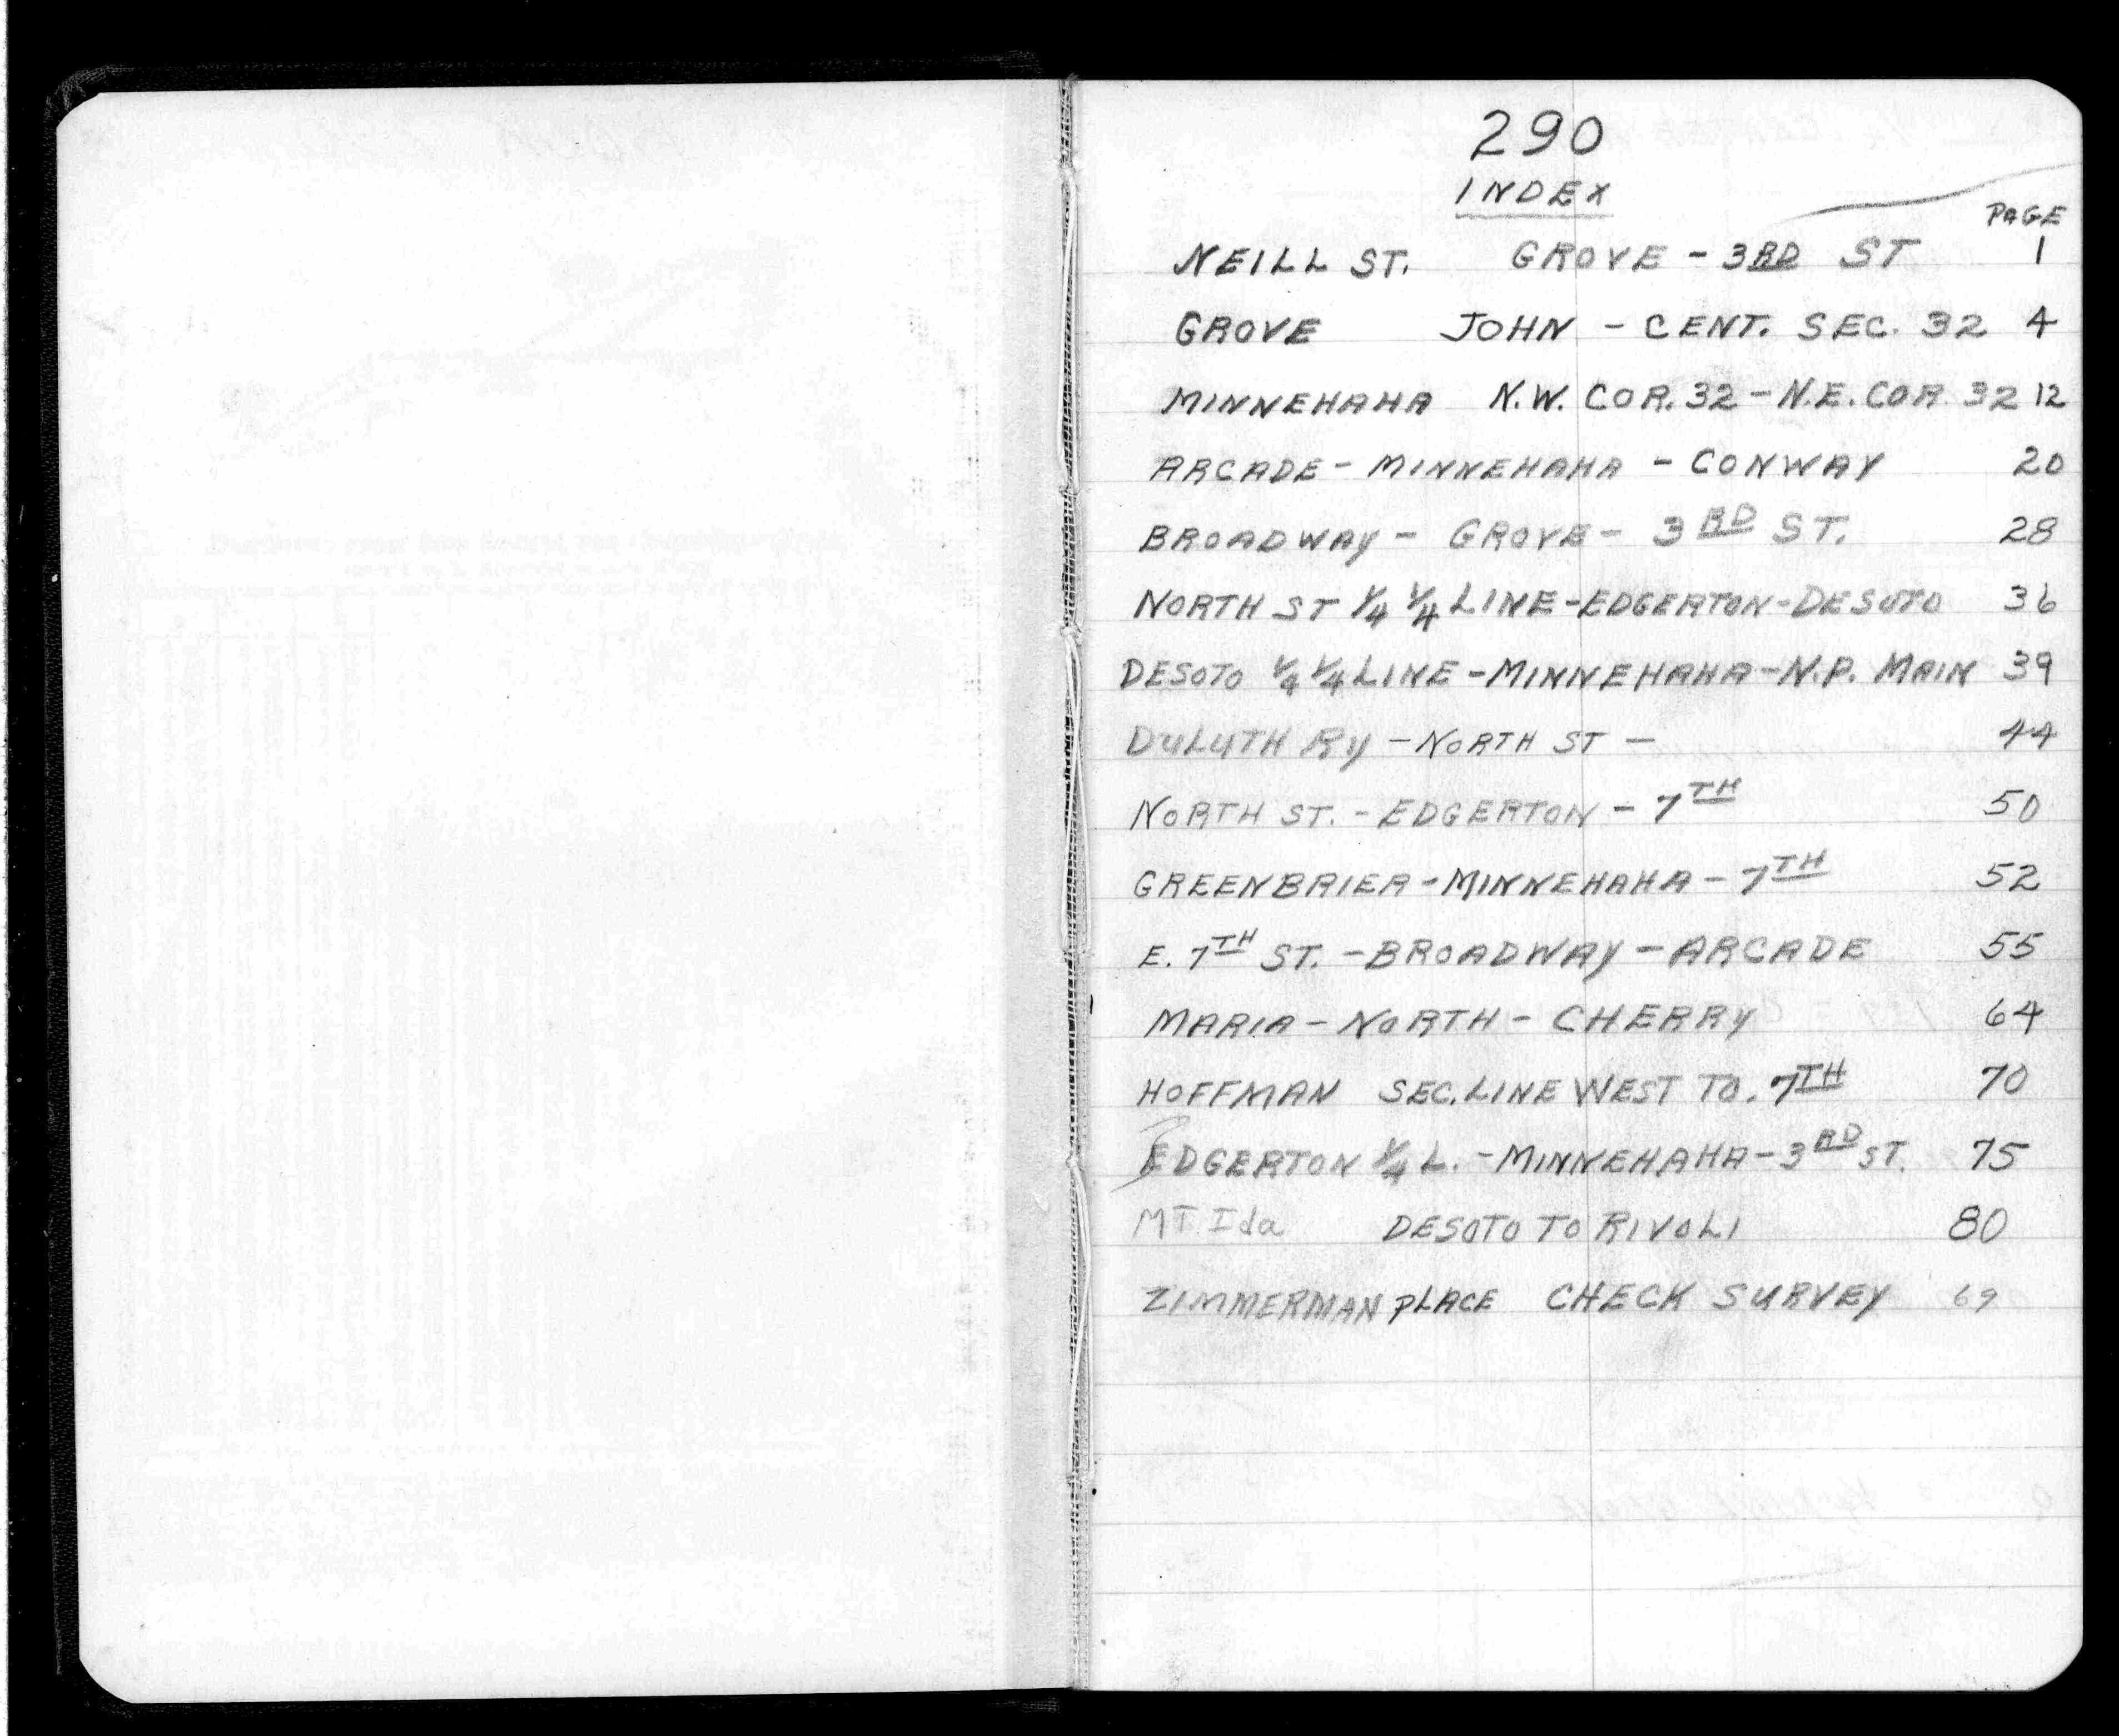 290
INDEX
PAGE
NEILL ST. GROVE - 3RD ST 1
GROVE JOHN - CENT. SEC. 32 4
MINNEHAHA N.W. COR. 32 - N.E. COR. 32 12
ARCADE - MINNEHAHA - CONWAY 20
BROADWAY - GROVE - 3RD ST. 28
NORTH ST 1/4 1/4 LINE - EDGERTON - DESOTO 36
DESOTO 1/4 1/4 LINE - MINNEHAHA - N.P. MAIN 39
DULUTH RY - NORTH ST - 44
NORTH ST. - EDGERTON - 7TH 50
GREENBRIER - MINNEHAHA - 7TH 52
E. 7TH ST. - BROADWAY - ARCADE 55
MARIA - NORTH - CHERRY 64
HOFFMAN SEC. LINE WEST TO. 7TH 70
EDGERTON 1/4 L. - MINNEHAHA - 3RD ST. 75
MT. Ida DESOTO TO RIVOLI 80
ZIMMERMAN PLACE CHECK SURVEY 69